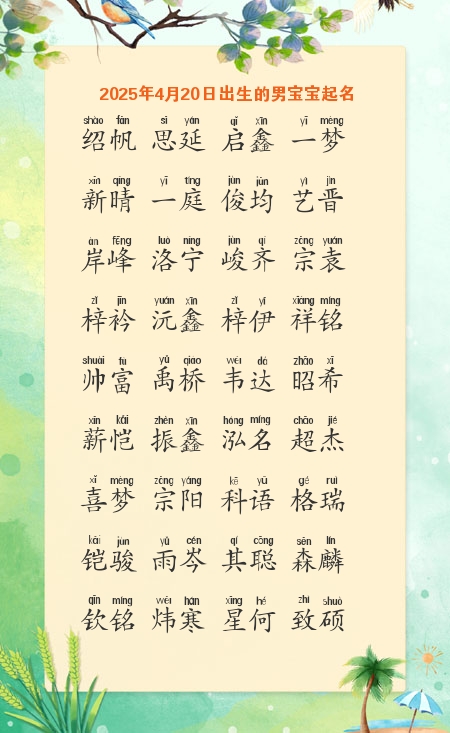 2025年4月20日出生的男宝宝起名
shào fān sī yán qǐ xīn yī mèng
绍帆 思延 启鑫 一梦
xīn qíng yī tíng jùn jūn yì jìn
新晴 一庭 俊均 艺晋
àn fēng luò níng jùn qí zōng yuán
岸峰 洛宁 峻齐 宗袁
zǐ jīn yuán xīn zǐ yī xiáng míng
梓衿 沅鑫 梓伊 祥铭
shuài fù yǔ qiáo wéi dá zhāo xī
帅富 禹桥 韦达 昭希
xīn kǎi zhèn xīn hóng míng chāo jié
薪恺 振鑫 泓名 超杰
xǐ mèng zōng yáng kē yǔ gé ruì
喜梦 宗阳 科语 格瑞
kǎi jùn yǔ cén qí cōng sēn lín
铠骏 雨岑 其聪 森麟
qīn míng wěi hán xīng hé zhì shuò
钦铭 炜寒 星何 致硕